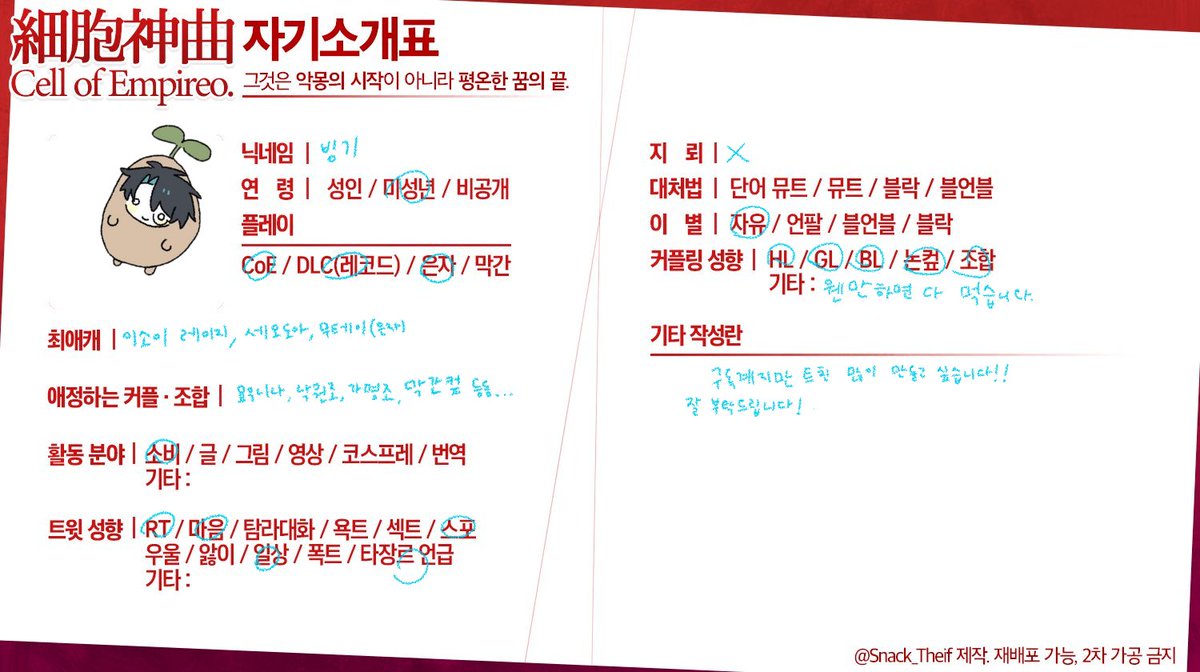 細胞神曲 자기소개표
Cell of Empireo. 그것은 악몽의 시작이 아니라 평온한 꿈의 끝.
닉네임 | 빙기
연 령 | 성인 / 미성년 / 비공개
플레이
CoE / DLC(레코드) / 은자 / 막간
최애캐 | 이소이 레이지, 세오도아, 무테이(은자)
애정하는 커플 · 조합 | 료우니나, 낙원조, 가명조, 막간컾 등등...
활동 분야 | 소비 / 글 / 그림 / 영상 / 코스프레 / 번역
기타 :
트윗 성향 | RT / 마음 / 탐라대화 / 욕트 / 섹트 / 스포
우울 / 앓이 / 일상 / 폭트 / 타장르 언급
기타 :
지 뢰 | X
대처법 | 단어 뮤트 / 뮤트 / 블락 / 블언블
이 별 | 자유 / 언팔 / 블언블 / 블락
커플링 성향 | HL / GL / BL / 논컾 / 조합
기타 : 웬만하면 다 먹습니다.
기타 작성란
구독계지만 트친 많이 만들고 싶습니다!!
잘 부탁드립니다!
@Snack_Theif 제작. 재배포 가능, 2차 가공 금지